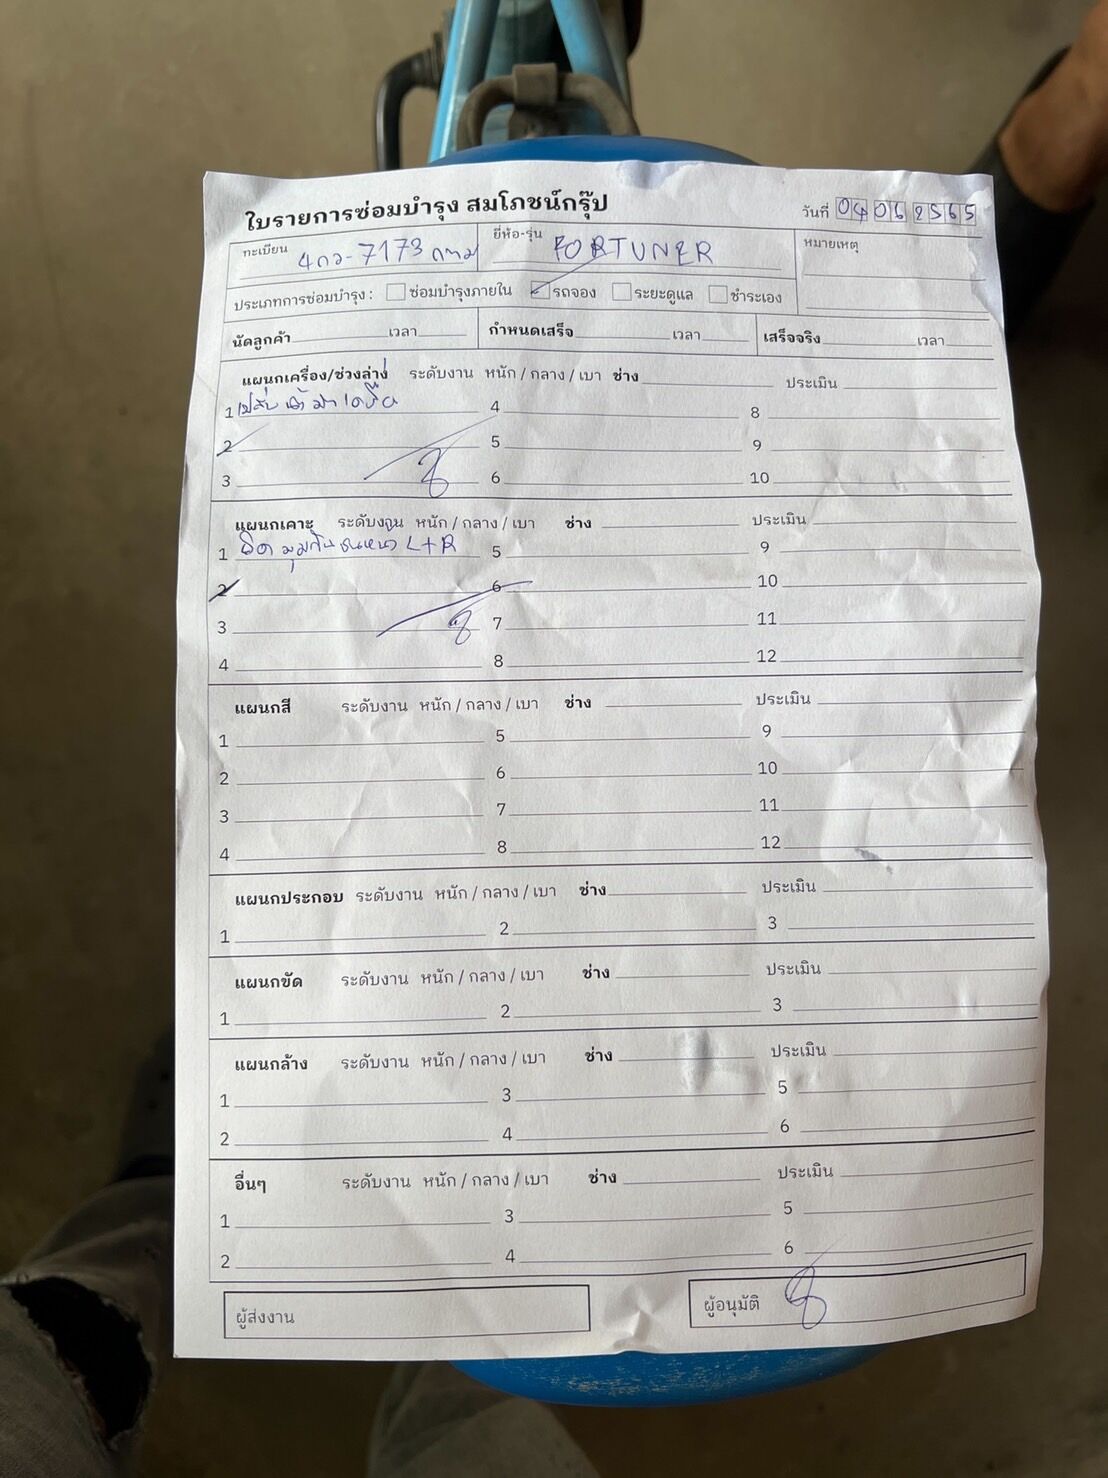 ใบรายการซ่อมบำรุง สมโภชน์กรุ๊ป วันที่ 04062565
ทะเบียน 4กว-7173 กทม ยี่ห้อ-รุ่น FORTUNER หมายเหตุ
ประเภทการซ่อมบำรุง : ซ่อมบำรุงภายใน รถจอง ระยะดูแล ชำระเอง
นัดลูกค้า เวลา กำหนดเสร็จ เวลา เสร็จจริง เวลา
แผนกเครื่อง/ช่วงล่าง ระดับงาน หนัก / กลาง / เบา ช่าง ประเมิน
1 4 8
2 5 9
3 6 10
แผนกเคาะ ระดับงาน หนัก / กลาง / เบา ช่าง ประเมิน
1 มุมกันชนหน้า L+R 5 9
2 6 10
3 7 11
4 8 12
แผนกสี ระดับงาน หนัก / กลาง / เบา ช่าง ประเมิน
1 5 9
2 6 10
3 7 11
4 8 12
แผนกประกอบ ระดับงาน หนัก / กลาง / เบา ช่าง ประเมิน
1 2 3
แผนกขัด ระดับงาน หนัก / กลาง / เบา ช่าง ประเมิน
1 2 3
แผนกล้าง ระดับงาน หนัก / กลาง / เบา ช่าง ประเมิน
1 3 5
2 4 6
อื่นๆ ระดับงาน หนัก / กลาง / เบา ช่าง ประเมิน
1 3 5
2 4 6
ผู้ส่งงาน ผู้อนุมัติ